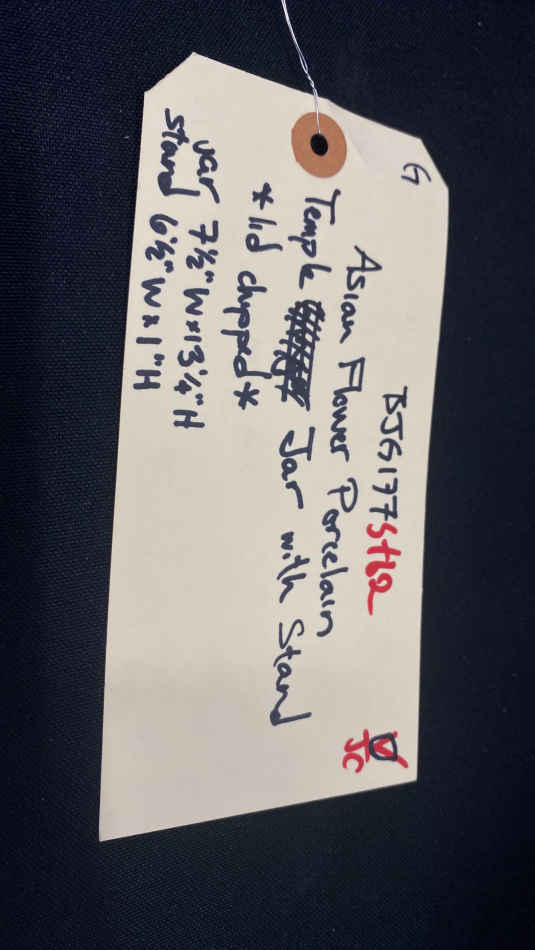 G
BJG177 5462
Asian Flower Porcelain
Temple Jar with Stand
*lid chipped*
Jar 7½" W x 13¼" H
stand 6½" W x 1" H
JC